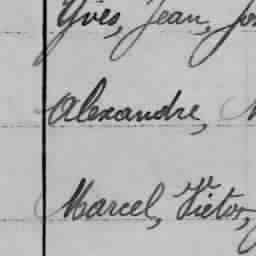 Yves, Jean, Jos
Alexandre,
Marcel, Victor,